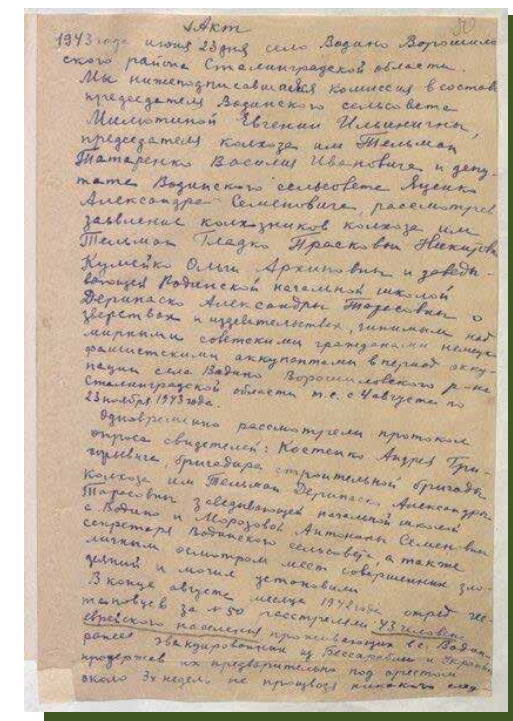 Акт
50
1943 года июня 23 дня село Водино Ворошилов
ского района Сталинградской области.
Мы нижеподписавшаяся комиссия в составе
председателя Водинского сельсовета
Милютиной Евгении Ильиничны,
председателя колхоза им Тельман
Татаренко Василия Ивановича и депу-
тата Водинского сельсовета Яценко
Александра Семеновича, рассмотрев
заявление колхозников колхоза им
Тельман Гладко Прасковьи
Кумейко Ольги Архиповны и заведы-
вающей Водинской начальной школой
Дерипаско Александры Тарасовны о
зверствах и издевательствах, чинимым над
мирными советскими гражданами немецко
фашистскими оккупантами в период окку-
пации села Водино Ворошиловского р-на
Сталинградской области т.е. с 4 августа по
23 ноября 1943 года.
Одновременно рассмотрели протокол
опроса свидетелей: Костенко Андрея Гри-
горьевича, бригадира строительной бригады
Колхоза им Тельман Дерипаско Александры
Тарасовны заведывающей начальной школой
с Водино и Морозовой Антонины Семеновны
секретаря Водинского сельсовета, а также
личным осмотром мест совершенных зло-
деяний и могил установили
В конце августа месяца 1942 года отряд ге-
стаповцев за N 50 расстреляли 43 человека
еврейского населения проживающих в с. Водино
ранее эвакуированных из Бессарабии и Украины
продержав их предварительно под арестом
около 3х недель не производя никакого